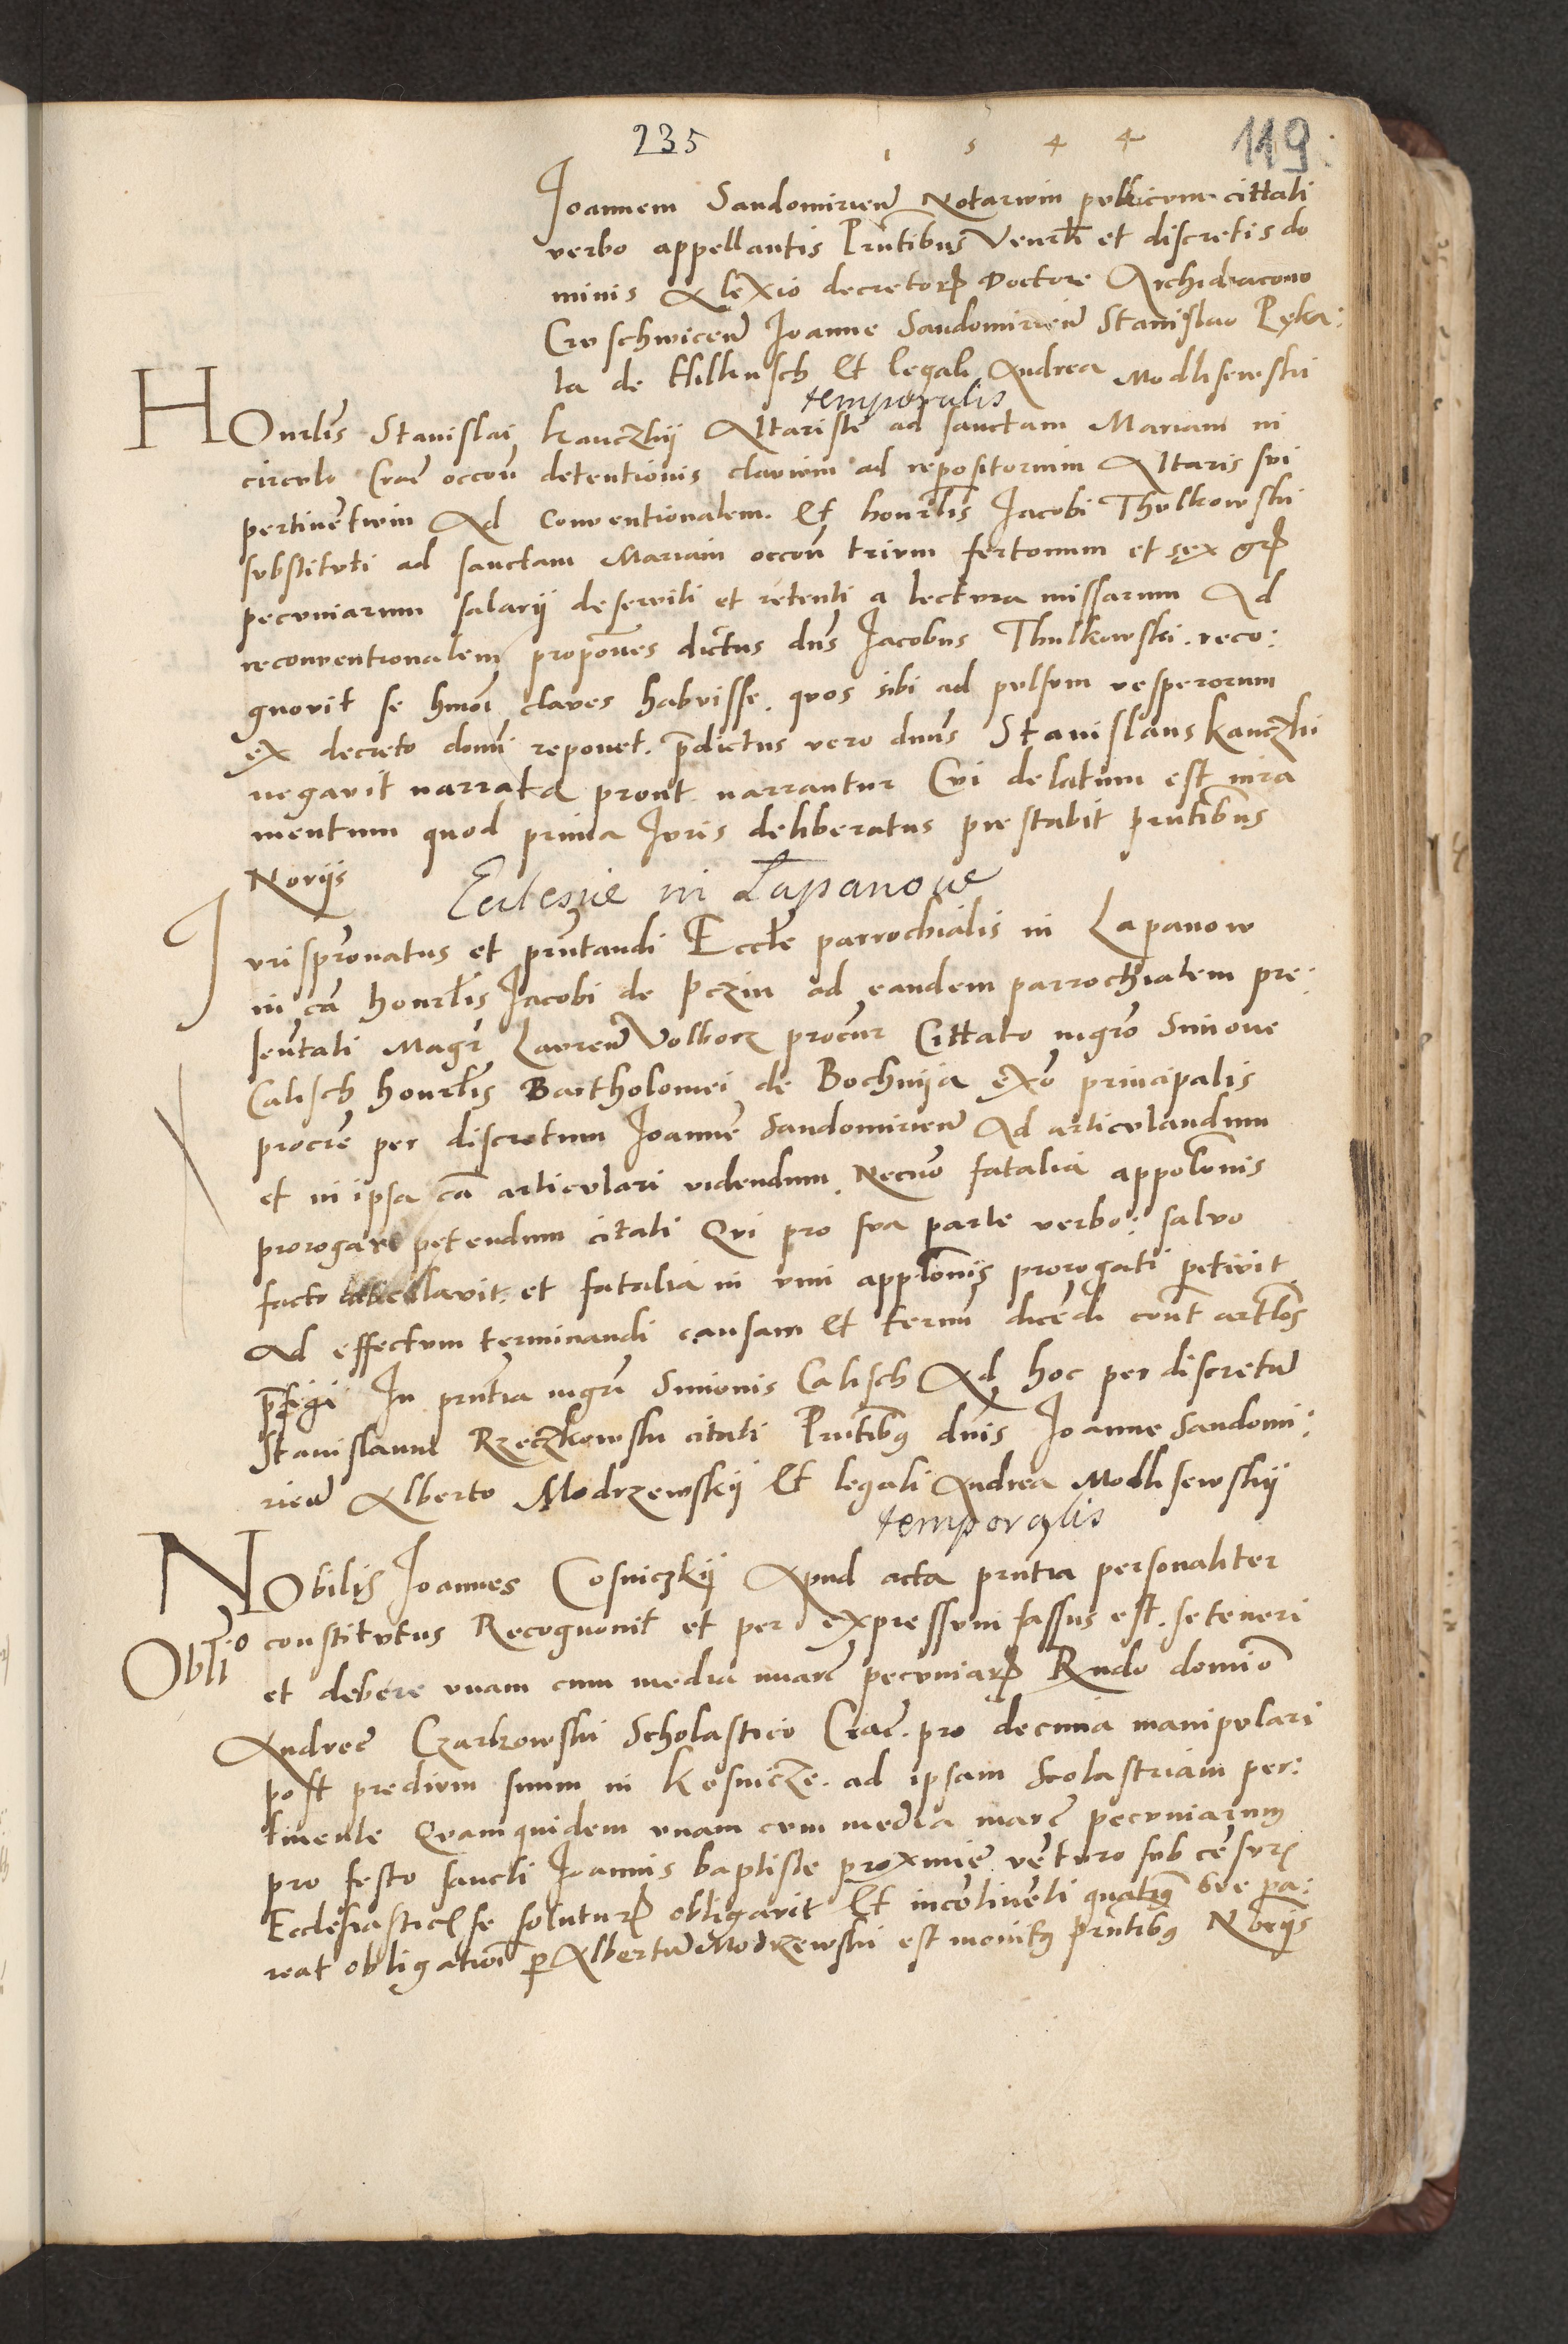 235 1 5 4 4 119
Joannem Sandomirien̄ Notarium publicum cittati
verbo appellantis Pn̄tibus Venerbli et discretis do
minis Alexio decretorꝝ Doctore Archidiacono
Cruschwicen̄ Joanne Sandomirien̄ Stanislao Pęka:
la de et legali Andrea Modlisewski
temporalis
HOnrłis Stanislai Kanczkij Altariste ad sanctam Mariam in
circulo Crac̄ occon̄ detentionis clavium ad repositorium Altaris sui
pertinentium Ad Conventionalem. Et honrłis Jacobi Thulkowski
substituti ad sanctam Mariam occon̄ trium fertonum et sęx grꝝ
pecuniarum salarij deserviti et retenti a lectura missarum Ad
reconventionalem propo̅nes dictus dn̄s Jacobus Thulkowski. reco:
gnovit se hmōi claves habuisse. quos sibi ad pulsum vesperorum
ex decreto domi reponet. p̄dictus vero dn̄us Stanislaus Kanczki
negavit narrata prout narrantur Cui delatum est iura
mentum quod prima Juris deliberatus prestabit pn̄tibus
Norijs
Eccłesie in Lapanowe
Jurispr̄onatus et pn̄tandi Eccłe parrochialis in Lapanow
in cā honrłis Jacobi de Pczin ad eandem parrochialem pre:
sentati Magr̄ Lauren̄ Volborz procur̄ Cittato mgr̄o Simone
Calisch honrłis Bartholomei de Bochnija exō principalis
procr̄e per discretum Joannē Sandomirien̄ Ad articulandum
et in ipsa cā articulari videndum. Necnō fatalia appołonis
prorogare petendum citati Qui pro sua parte verbo: salvo
facto et fatalia in vim appłonis prorogati petivit
Ad effectum terminandi causam et term̄ dicēdi cont̄ artłos
p̄figi In pn̄tia mgr̄i Simonis Calisch Ad hoc per discretū
Stanislaum Rzeczkowski citati Pn̄tibus dn̄is Joanne Sandomi:
rien̄ Alberto Modrzewskij Et legali Andrea Modlisewskij
temporalis
NObilis Joannes Cosniczkij Apud acta pn̄tia personaliter
Obłio constitutus Recognovit et per expressum fassus est. se teneri
et debere unam cum media marc̄ pecuniarꝝ Rn̄do domiō
Andreę Czarkowski Scholastico Crac̄. pro decima manipulari
post predium suum in Kosnicze. ad ipsam Scolastriam per:
tinente Quam quidem unam cum media marc̄ pecuniarum
pro festo sancti Joannis baptiste proxime vēturo sub cēsurꝭ
Ecclesiasticꝭ se soluturꝝ obligavit Et incōtinēti quatꝫ sue pa:
reat obligationi ꝑ Albertū Modrzewski est monitꝰ pn̄tibꝰ Norijs